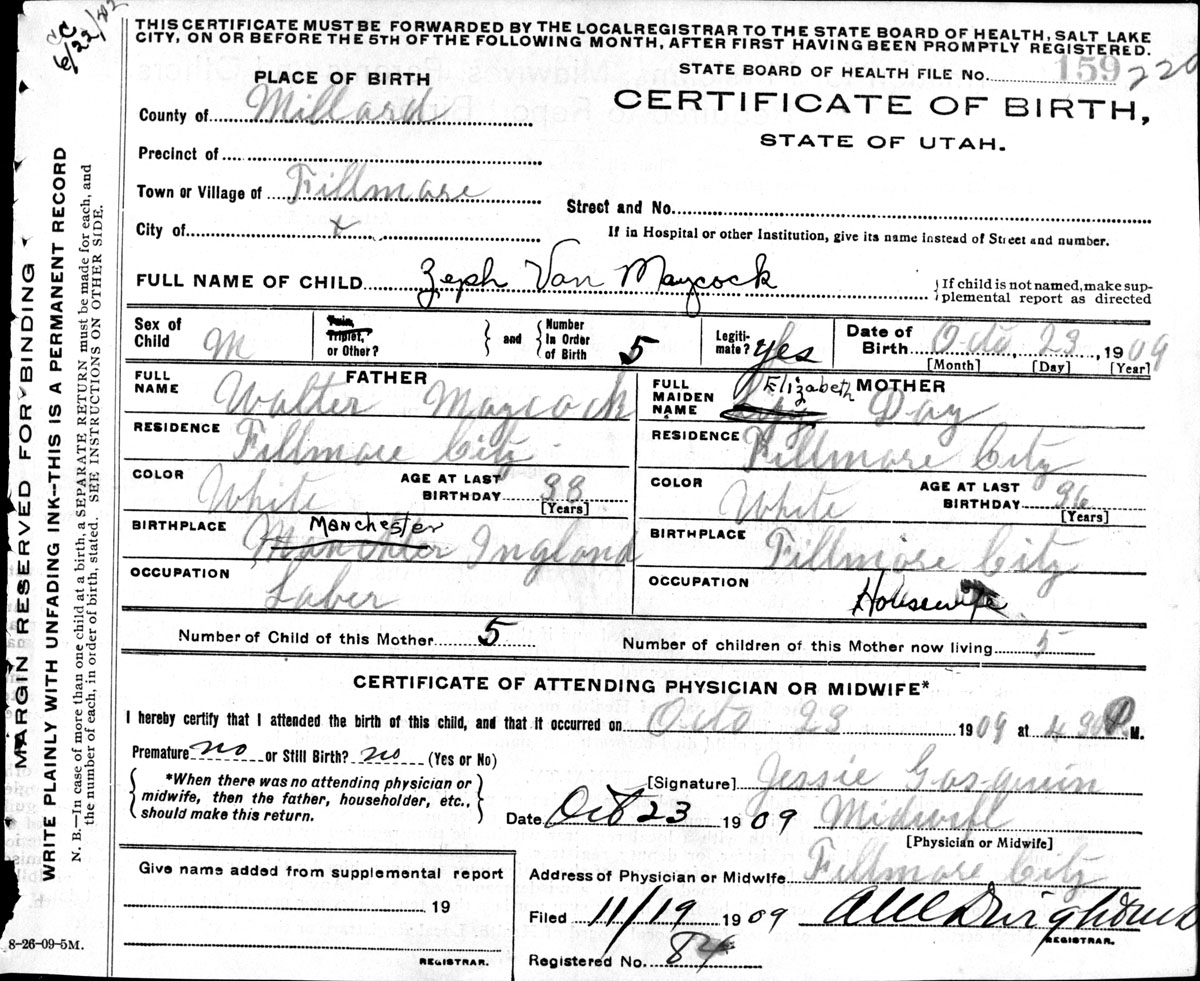 cc
6/22/
THIS CERTIFICATE MUST BE FORWARDED BY THE LOCAL REGISTRAR TO THE STATE BOARD OF HEALTH, SALT LAKE
CITY, ON OR BEFORE THE 5TH OF THE FOLLOWING MONTH, AFTER FIRST HAVING BEEN PROMPTLY REGISTERED.
STATE BOARD OF HEALTH FILE No. 159 220
CERTIFICATE OF BIRTH,
STATE OF UTAH.
PLACE OF BIRTH
County of Millard
Precinct of
Town or Village of Fillmore
Street and No.
City of x
If in Hospital or other Institution, give its name instead of Street and number.
FULL NAME OF CHILD Zeph Van Maycock
{If child is not named, make sup-
plemental report as directed
Sex of Child M
Twin, Triplet, or Other?
and
Number In Order of Birth 5
Legiti-mate? yes
Date of Birth Octo 23, 1909
[Month] [Day] [Year]
FATHER
FULL NAME Walter Maycock
RESIDENCE Fillmore City
COLOR White
AGE AT LAST BIRTHDAY 38
[Years]
BIRTHPLACE Manchester Ingland
OCCUPATION Laber
MOTHER
FULL MAIDEN NAME Elizabeth Day
RESIDENCE Fillmore City
COLOR White
AGE AT LAST BIRTHDAY 36
[Years]
BIRTHPLACE Fillmore City
OCCUPATION Housewife
Number of Child of this Mother 5
Number of children of this Mother now living 5
CERTIFICATE OF ATTENDING PHYSICIAN OR MIDWIFE*
I hereby certify that I attended the birth of this child, and that it occurred on Octo 23 1909 at 4 30 P M.
Premature no or Still Birth? no (Yes or No)
{*When there was no attending physician or
midwife, then the father, householder, etc.,
should make this return.}
[Signature] Jessie Gasquin
Date Oct 23 1909 Midwife
[Physician or Midwife]
Address of Physician or Midwife Fillmore City
Give name added from supplemental report
19
REGISTRAR.
Filed 11/19 1909
REGISTRAR.
Registered No. 84
8-26-09-5M.
MARGIN RESERVED FOR BINDING
WRITE PLAINLY WITH UNFADING INK--THIS IS A PERMANENT RECORD
N. B.—In case of more than one child at a birth, a SEPARATE RETURN must be made for each, and
the number of each, in order of birth, stated. SEE INSTRUCTIONS ON OTHER SIDE.